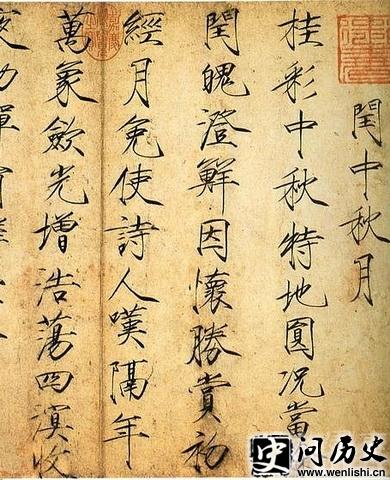 閏中秋月
桂彩中秋特地圓况當
閏魄澄鮮因懷勝賞初
經月免使詩人嘆隔年
萬象斂光增浩蕩四溟收
问历史
www.wenlishi.cn